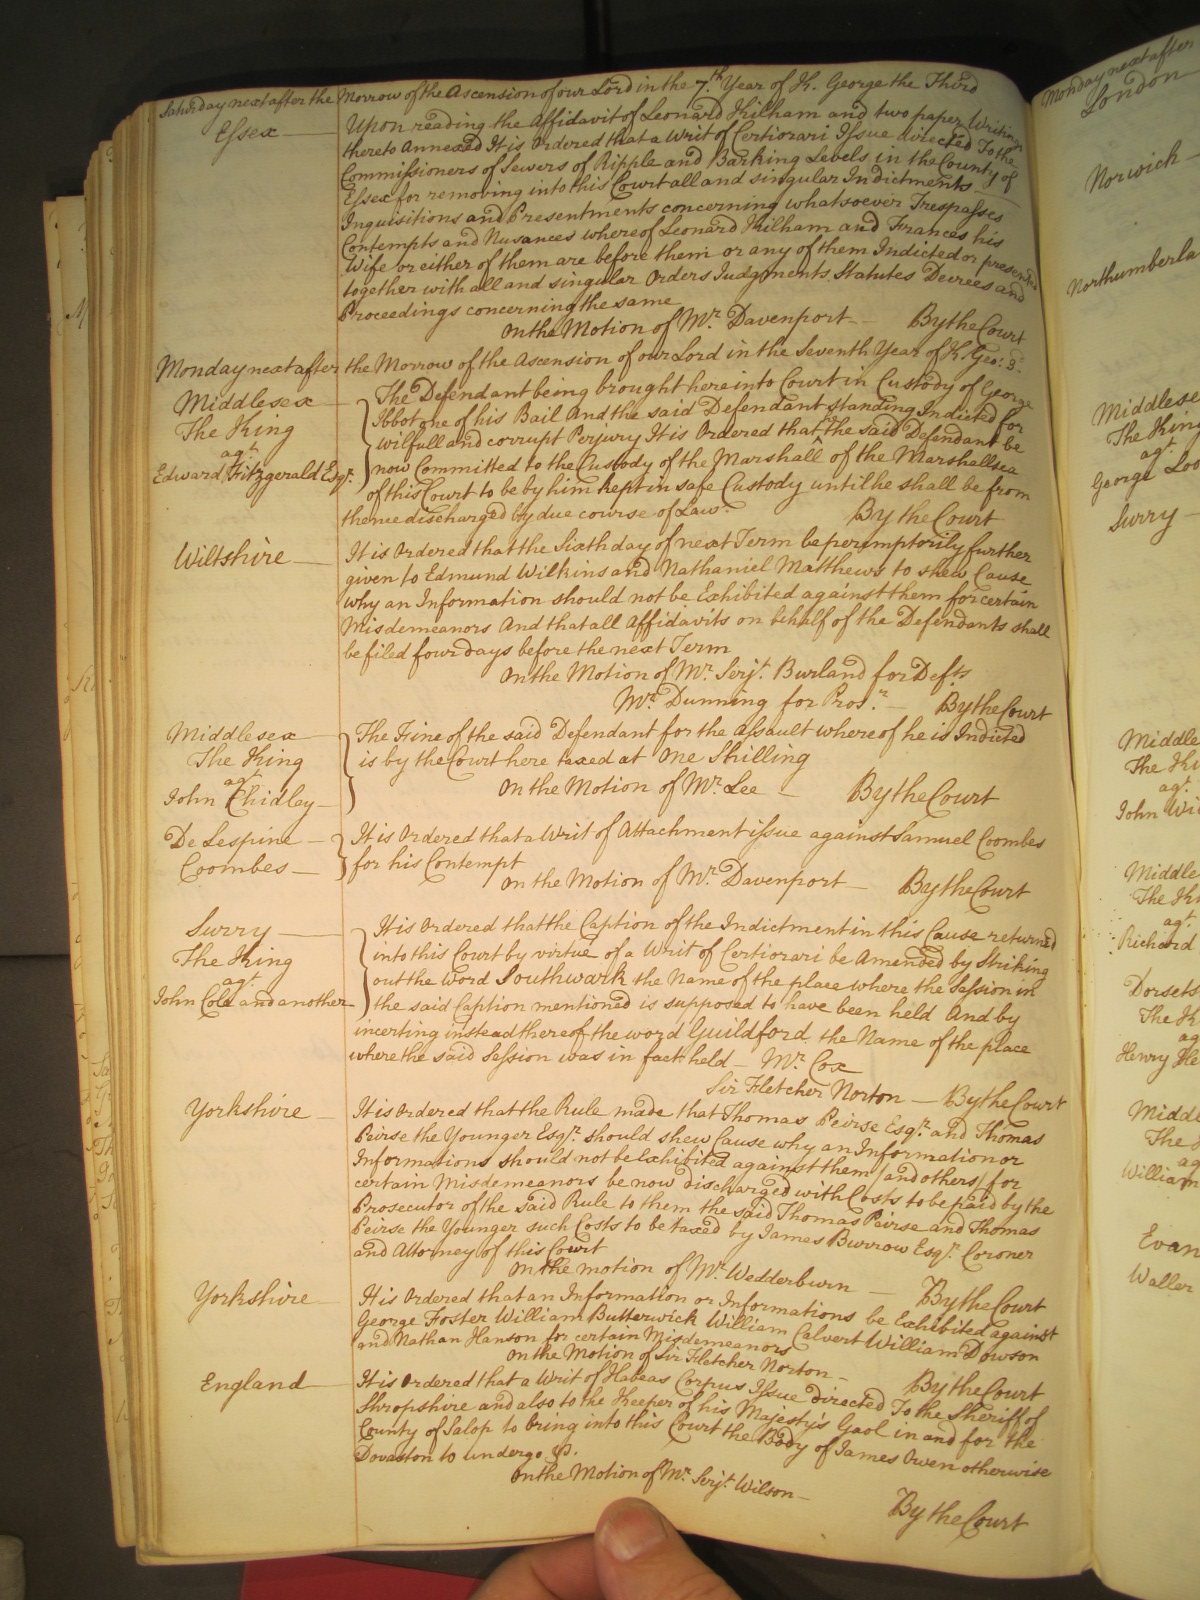 Saturday next after the Morrow of the Ascension of our Lord in the 7.th Year of K. George the Third
Essex
Upon reading the Affidavit of Leonard Kilham and two paper Writings
thereto Annexed It is Ordered that a Writ of Certiorari Issue directed To the
Commissioners of Sewers of Ripple and Barking Levels in the County of
Essex for removing into this Court all and singular Indictments
Inquisitions and Presentments concerning whatsoever Trespasses
Contempts and Nusances whereof Leonard Kilham and Frances his
Wife or either of them are before them or any of them Indicted or presented
together with all and singular Orders Judgments Statutes Decrees and
Proceedings concerning the same
On the Motion of Mr. Davenport By the Court
Monday next after the Morrow of the Ascension of our Lord in the Seventh Year of K. Geo: 3d.
Middlesex
The King
agt.
Edward Fitzgerald Esqr.
The Defendant being brought here into Court in Custody of George
Abbot one of his Bail And the said Defendant standing Indicted for
wilfull and corrupt Perjury It is Ordered that the said Defendant be
now Committed to the Custody of the Marshall of the Marshallsea
of this Court to be by him kept in safe Custody until he shall be from
thence discharged by due course of Law By the Court
Wiltshire
It is Ordered that the Sixth day of next Term be peremptorily further
given to Edmund Wilkins and Nathaniel Matthews to shew Cause
why an Information should not be Exhibited against them for certain
Misdemeanors And that all Affidavits on behalf of the Defendants shall
be filed four days before the next Term
On the Motion of Mr. Serjt. Burland for Defts.
Mr. Dunning for Prosr. By the Court
Middlesex
The King
agt.
John Chidley
The Fine of the said Defendant for the Assault whereof he is Indicted
is by the Court here taxed at One Shilling
On the Motion of Mr. Lee By the Court
De Lespine
Coombes
It is Ordered that a Writ of Attachment issue against Samuel Coombes
for his Contempt
On the Motion of Mr. Davenport By the Court
Surry
The King
agt.
John Cole and another
It is Ordered that the Caption of the Indictment in this Cause returned
into this Court by virtue of a Writ of Certiorari be Amended by Striking
out the Word Southwark the Name of the place where the Session in
the said Caption mentioned is supposed to have been held And by
incerting instead thereof the word Guildford the Name of the place
where the said Session was in fact held Mr. Cox
Sir Fletcher Norton By the Court
Yorkshire
It is Ordered that the Rule made that Thomas Peirse Esqr. and Thomas
Peirse the Younger Esqr. should shew Cause why an Information or
Informations should not be Exhibited against them (and others) for
certain Misdemeanors be now discharged with Costs to be paid by the
Prosecutor of the said Rule to them the said Thomas Peirse and Thomas
Peirse the Younger such Costs to be taxed by James Burrow Esqr. Coroner
and Attorney of this Court
On the motion of Mr. Wedderburn By the Court
Yorkshire
It is Ordered that an Information or Informations be Exhibited against
George Foster William Butterwick William Calvert William Dowson
and Nathan Hanson for certain Misdemeanors
On the Motion of Sir Fletcher Norton By the Court
England
It is Ordered that a Writ of Habeas Corpus Issue directed To the Sheriff of
Shropshire and also to the Keeper of his Majesty's Gaol in and for the
County of Salop to bring into this Court the Body of James Owen otherwise
Dovaston to undergo &c.
On the Motion of Mr. Serjt. Wilson
By the Court
Monday next after
London
Norwich
Northumberla
Middlese
The King
agt.
George Loo
Surry
Middle
The Ki
agt.
John Wil
Middle
The Ki
agt.
Richard
Dorsets
The K
ag
Henry He
Middl
The
ag
William
Evan
Waller